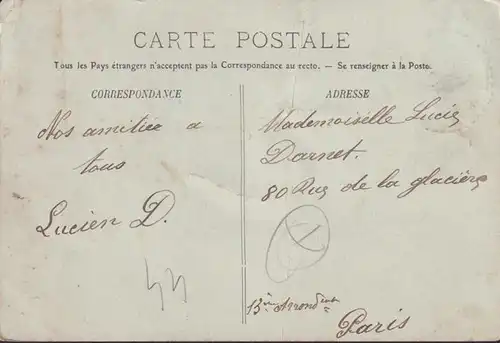 CARTE POSTALE
Tous les Pays étrangers n'acceptent pas la Correspondance au recto. — Se renseigner à la Poste.
CORRESPONDANCE
Nos amitiée a
tous
Lucien D.
44
ADRESSE
Mademoiselle Lucie
Darnet.
80 Rue de la glacière
13ème Arrondent
Paris